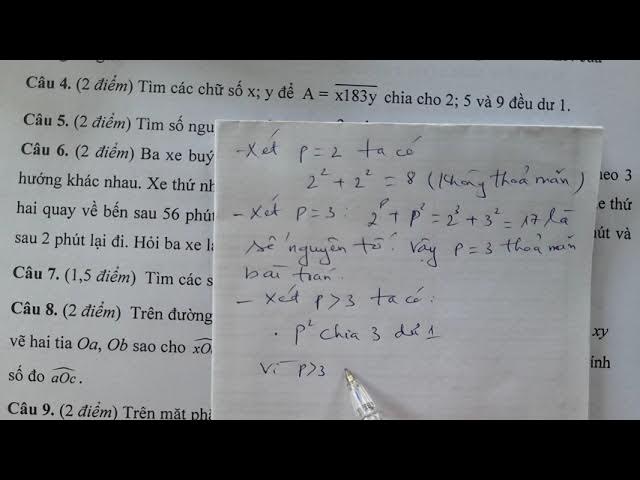 Câu 4. (2 điểm) Tìm các chữ số x; y để A = x183y chia cho 2; 5 và 9 đều dư 1.
Câu 5. (2 điểm) Tìm số ngu
Câu 6. (2 điểm) Ba xe buý
heo 3
hướng khác nhau. Xe thứ nh
e thứ
hai quay về bến sau 56 phút
út và
sau 2 phút lại đi. Hỏi ba xe
Câu 7. (1,5 điểm) Tìm các s
Câu 8. (2 điểm) Trên đường
xy
vẽ hai tia Oa, Ob sao cho xO
ính
số đo aOc.
Câu 9. (2 điểm) Trên mặt ph
- Xét p = 2 ta có
2² + 2² = 8 (Không thoả mãn)
- Xét p = 3: 2^p + p² = 2³ + 3² = 17 là
số nguyên tố. Vậy p = 3 thoả mãn
bài toán.
- Xét p > 3 ta có:
. p² chia 3 dư 1
Vì p > 3